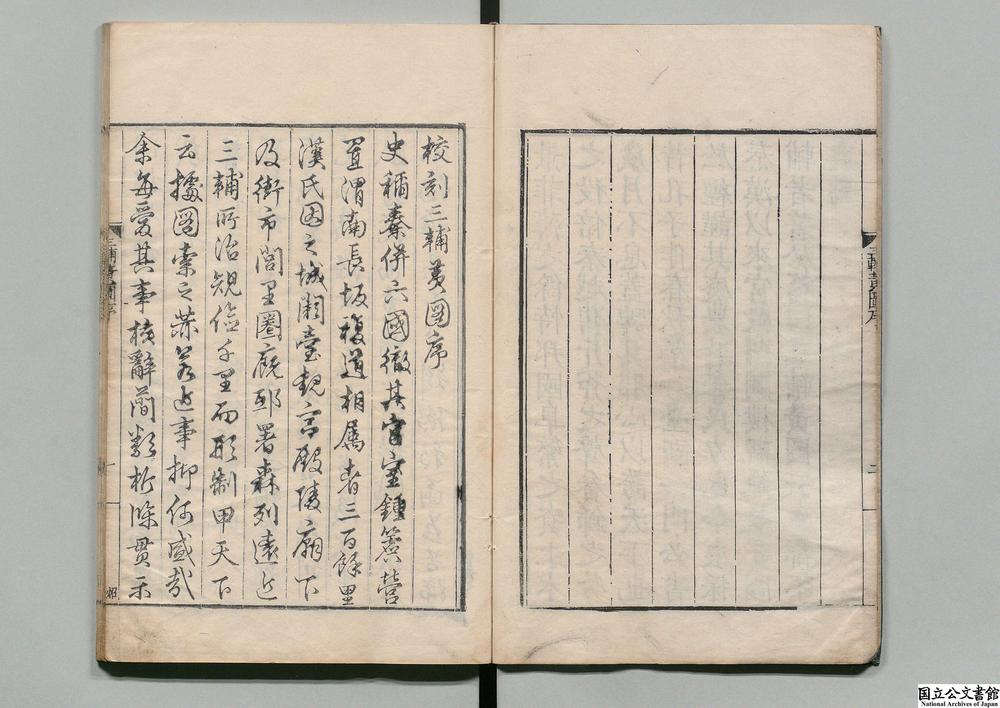 三輔黃圖序
二
校刻三輔黃圖序
史稱秦併六國徹其宮室鍾簴營
置渭南長坂複道相屬者三百餘里
漢氏因之城闕臺觀宮殿陵廟下
及街市閭里圈廐邸署森列遠近
三輔所治規恢千里而形制甲天下
云據圖索之茲為近事抑何盛哉
余每愛其事核辭簡類析條貫示
一
国立公文書館
National Archives of Japan